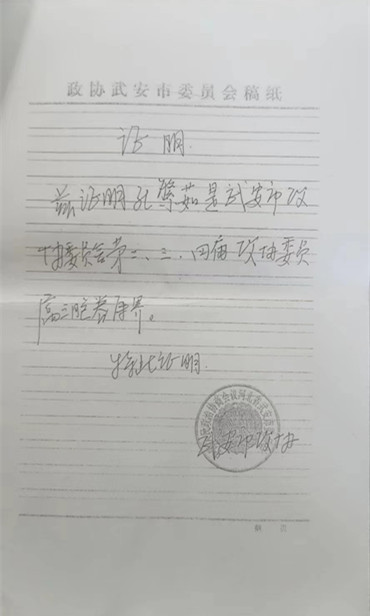 政协武安市委员会稿纸
证明
兹证明孔繁茹是武安市政
协委员会第二、三、四届政协委员
特此证明.
武安市政协